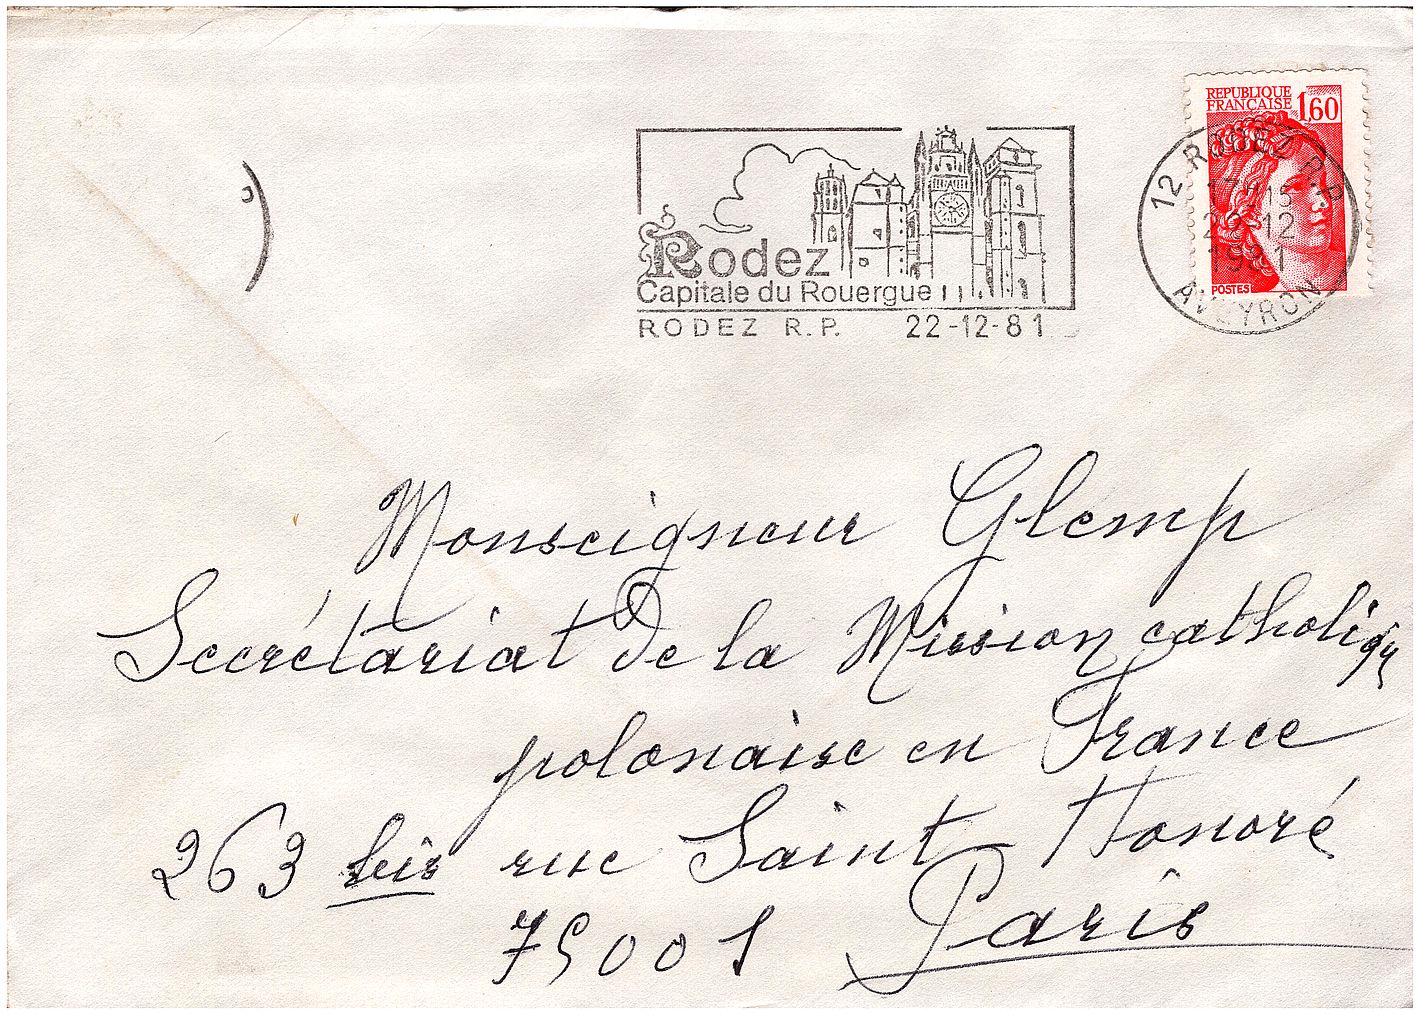 REPUBLIQUE
FRANÇAISE 1,60
POSTES
12 RODEZ R.P.
17H15
22-12
1981
AVEYRON
Rodez
Capitale du Rouergue
RODEZ R.P. 22-12-81
Monseigneur Glemp
Secrétariat de la Mission catholiqu
polonaise en France
263 bis rue Saint Honoré
75001 Paris